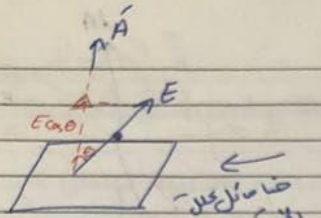 A
E
E cos θ
θ
هنا مائل على